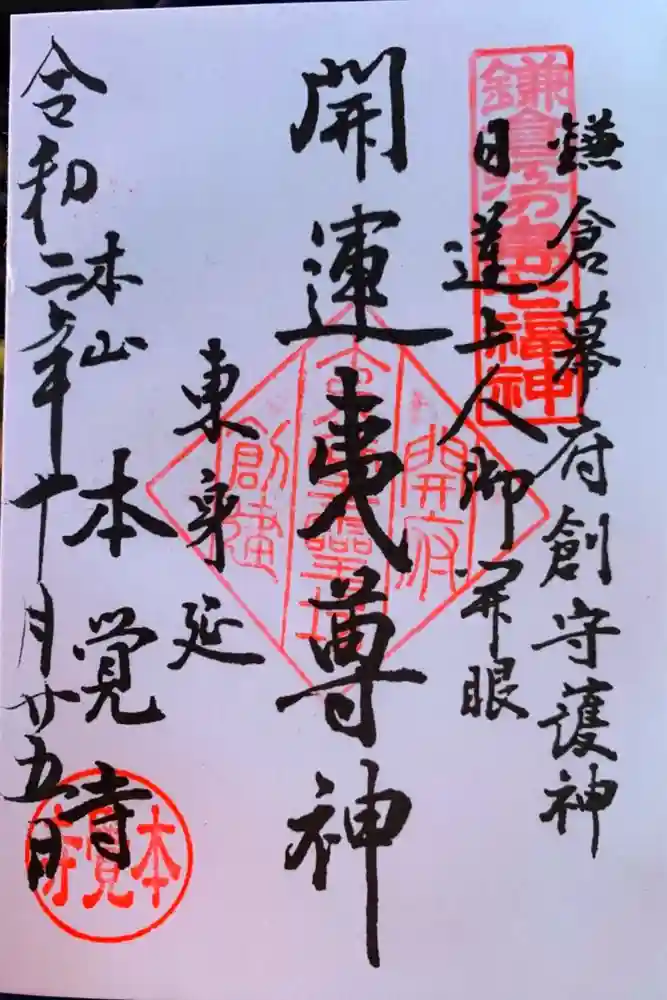 鎌倉幕府創守護神
日蓮上人御開眼
開運夷尊神
東身延
本山
本覚寺
令和二年十月廿五日
鎌倉江の島七福神
開府
創建
本覺寺